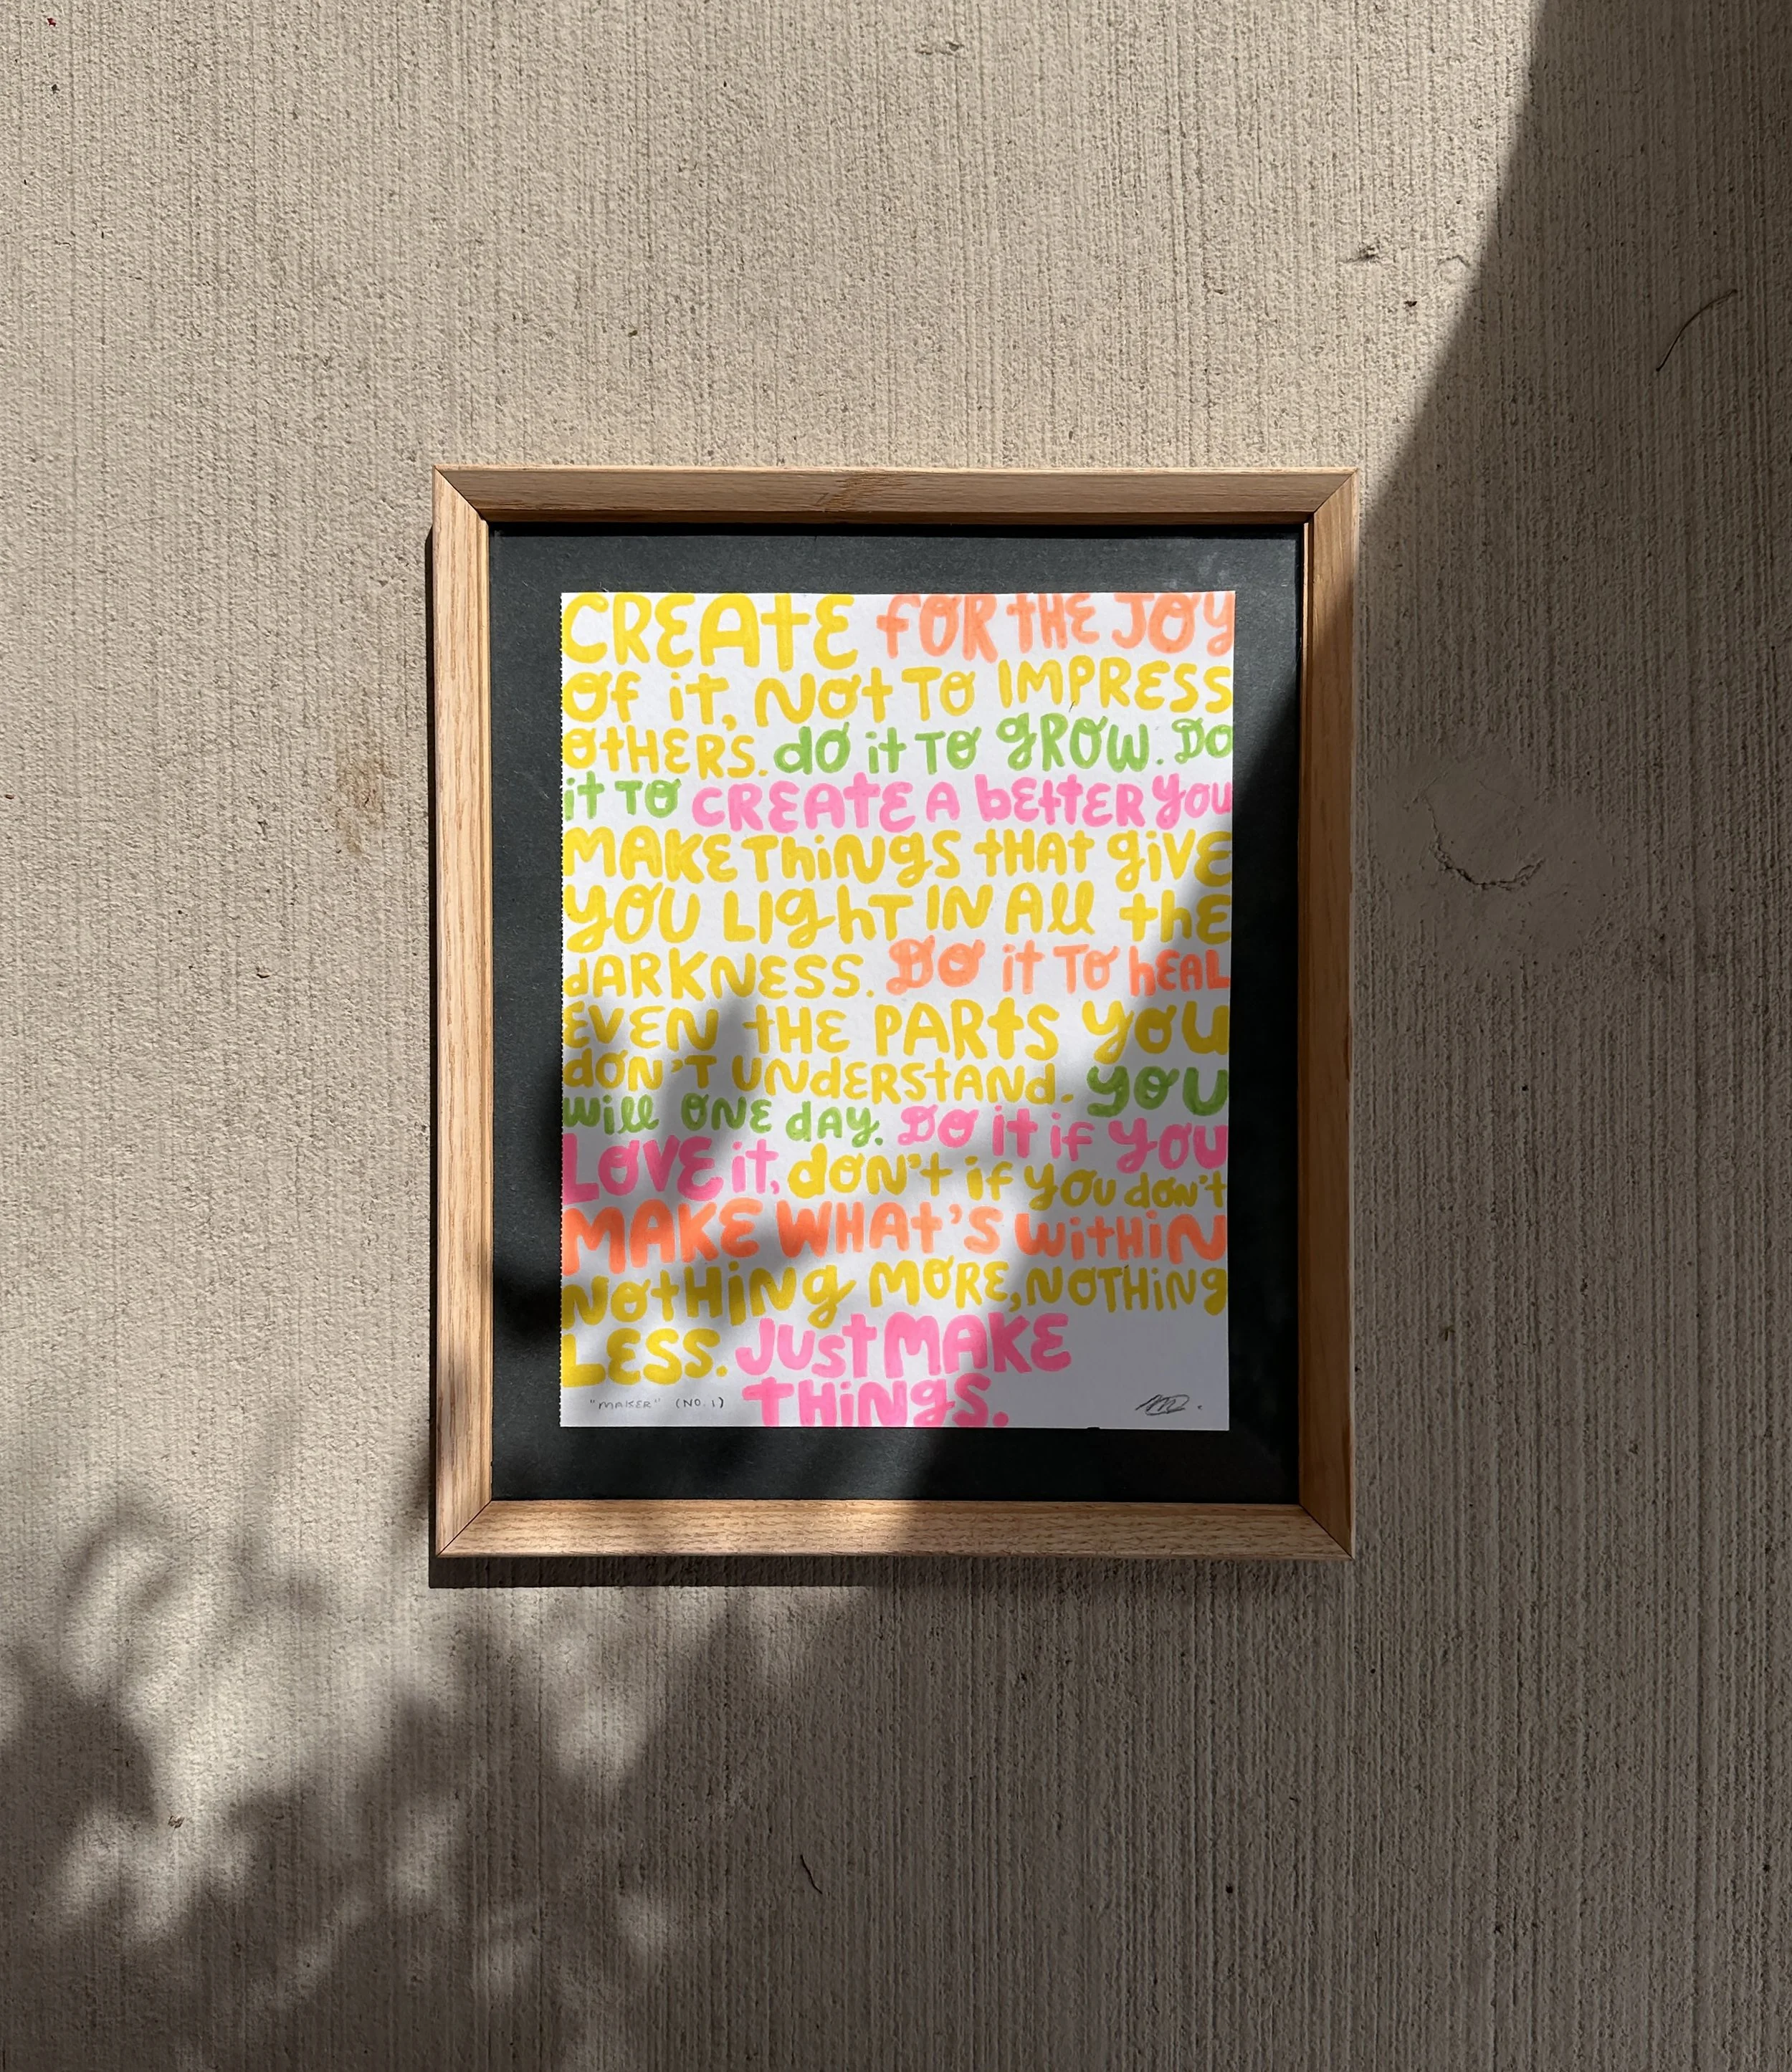 CREATE FOR THE JOY
OF it, NOt TO IMPRESS
OtHERS. dO it TO gROW. DO
it TO CREATE A bEttER YOU
MAKE ThiNgS tHAt giVE
YOU LIghT IN All thE
dARKNESS. DO it TO hEAL
EVEN tHE PARtS YOU
dON'T UNdERStANd. YOU
will ONE dAY. DO it if YOU
LOVE it, dON't if YOU dON't
MAKE WHAt'S WitHiN
NOtHiNg MORE, NOTHiNg
LESS. JUSt MAKE
THiNgS.
"MAKER" (NO. 1)